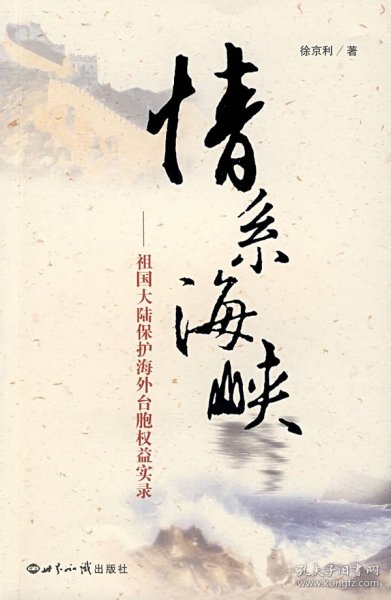 徐京利／著
情系海峡
——祖国大陆保护海外台胞权益实录
世界知识出版社
孔夫子旧书网
www.kongfz.com